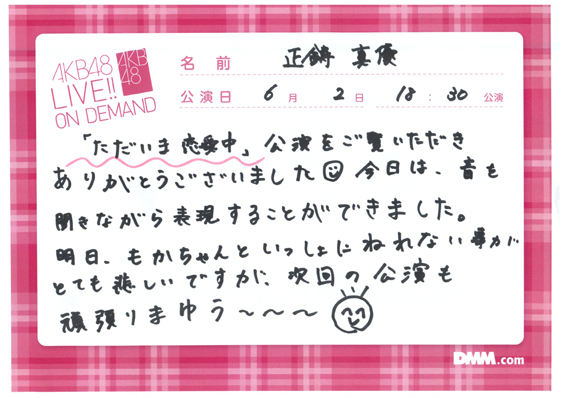 AKB48
LIVE!!
ON DEMAND
AKB
48
名前 正鋳真優
公演日 6月2日 18:30公演
「ただいま恋愛中」公演をご覧いただき
ありがとうございました 今日は、音も
聞きながら表現することができました。
明日、もかちゃんといっしょにねれない事が
とても悲しいですが、次回の公演も
頑張りまゆう〜〜〜
DMM.com